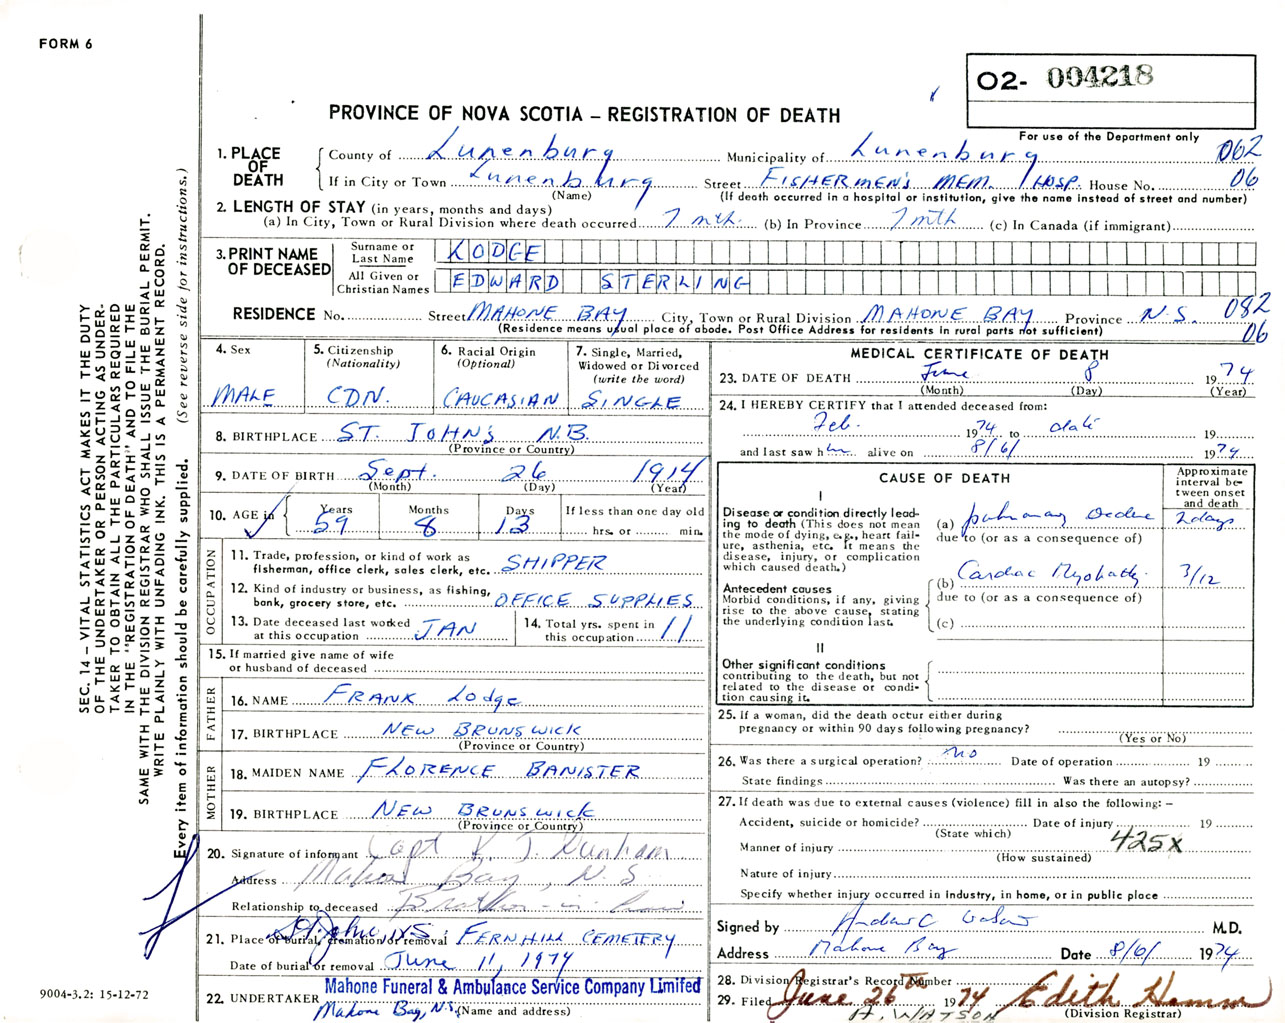 FORM 6
02- 004218
PROVINCE OF NOVA SCOTIA – REGISTRATION OF DEATH
For use of the Department only
1. PLACE OF DEATH
County of Lunenburg Municipality of Lunenburg 062
If in City or Town Lunenburg Street FISHERMEN'S MEM. HOSP. House No. 06
(Name) (If death occurred in a hospital or institution, give the name instead of street and number)
2. LENGTH OF STAY (in years, months and days)
(a) In City, Town or Rural Division where death occurred 7 mth. (b) In Province 7 mth (c) In Canada (if immigrant)
3. PRINT NAME OF DECEASED
Surname or Last Name LODGE
All Given or Christian Names EDWARD STERLING
RESIDENCE No. Street MAHONE BAY City, Town or Rural Division MAHONE BAY Province N.S. 082
(Residence means usual place of abode. Post Office Address for residents in rural parts not sufficient) 06
4. Sex
MALE
5. Citizenship
(Nationality)
CDN.
6. Racial Origin
(Optional)
CAUCASIAN
7. Single, Married,
Widowed or Divorced
(write the word)
SINGLE
8. BIRTHPLACE ST. JOHN'S N.B.
(Province or Country)
9. DATE OF BIRTH Sept. 26 1914
(Month) (Day) (Year)
10. AGE in
Years Months Days If less than one day old
59 8 13 hrs. or min.
OCCUPATION
11. Trade, profession, or kind of work as
fisherman, office clerk, sales clerk, etc. SHIPPER
12. Kind of industry or business, as fishing,
bank, grocery store, etc. OFFICE SUPPLIES
13. Date deceased last worked
at this occupation JAN
14. Total yrs. spent in
this occupation 11
15. If married give name of wife
or husband of deceased
FATHER
16. NAME FRANK Lodge
17. BIRTHPLACE NEW BRUNSWICK
(Province or Country)
MOTHER
18. MAIDEN NAME FLORENCE BANISTER
19. BIRTHPLACE NEW BRUNSWICK
(Province or Country)
20. Signature of informant Capt K. J. Dunham
Address Mahone Bay, N.S.
Relationship to deceased Brother-in-law
21. Place of burial, cremation or removal St. John, N.S. FERNHILL CEMETERY
Date of burial or removal June 11, 1974
22. UNDERTAKER Mahone Funeral & Ambulance Service Company Limited
Mahone Bay, N.S. (Name and address)
MEDICAL CERTIFICATE OF DEATH
23. DATE OF DEATH June 8 1974
(Month) (Day) (Year)
24. I HEREBY CERTIFY that I attended deceased from:
Feb. 1974 to date 19
and last saw him alive on 8/6/ 1974
CAUSE OF DEATH
Approximate
interval be-
tween onset
and death
I
Disease or condition directly lead-
ing to death (This does not mean
the mode of dying, e.g., heart fail-
ure, asthenia, etc. It means the
disease, injury, or complication
which caused death.)
(a) pulmonary 2 days
due to (or as a consequence of)
Antecedent causes
Morbid conditions, if any, giving
rise to the above cause, stating
the underlying condition last.
(b) Cardiac 3/12
due to (or as a consequence of)
(c)
II
Other significant conditions
contributing to the death, but not
related to the disease or condi-
tion causing it.
25. If a woman, did the death occur either during
pregnancy or within 90 days following pregnancy?
(Yes or No)
26. Was there a surgical operation? no Date of operation 19
State findings Was there an autopsy?
27. If death was due to external causes (violence) fill in also the following: –
Accident, suicide or homicide? Date of injury 19
(State which)
Manner of injury 425X
(How sustained)
Nature of injury
Specify whether injury occurred in industry, in home, or in public place
Signed by M.D.
Address Mahone Bay Date 8/6/ 1974
28. Division Registrar's Record Number
29. Filed June 26th 1974 Edith Hamm
A. WATSON (Division Registrar)
SEC. 14 – VITAL STATISTICS ACT MAKES IT THE DUTY
OF THE UNDERTAKER OR PERSON ACTING AS UNDER-
TAKER TO OBTAIN ALL THE PARTICULARS REQUIRED
IN THE "REGISTRATION OF DEATH" AND TO FILE THE
SAME WITH THE DIVISION REGISTRAR WHO SHALL ISSUE THE BURIAL PERMIT.
WRITE PLAINLY WITH UNFADING INK. THIS IS A PERMANENT RECORD.
Every item of information should be carefully supplied. (See reverse side for instructions.)
9004-3.2: 15-12-72